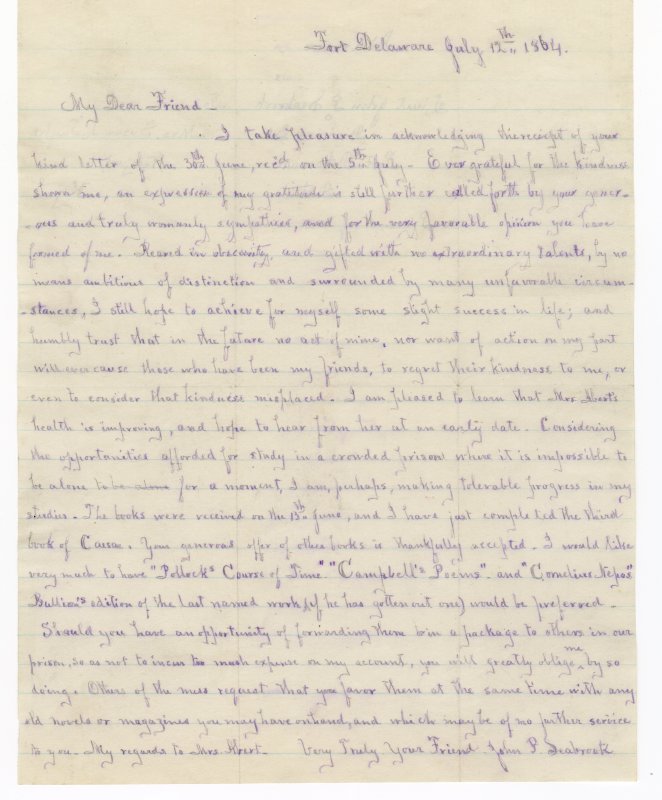 Fort Delaware July 12th 1864.
My Dear Friend -
I take pleasure in acknowledging the receipt of your
kind letter of the 30th June, recd. on the 5th July - Ever grateful for the kindness
shown me, an expression of my gratitude is still further called forth by your gener-
-ous and truly womanly sympathies, and for the very favorable opinion you have
formed of me. Reared in obscurity, and gifted with no extraordinary talents, by no
means ambitious of distinction and surrounded by many unfavorable circum-
-stances, I still hope to achieve for myself some slight success in life; and
humbly trust that in the future no act of mine, nor want of action on my part
will ever cause those who have been my friends, to regret their kindness to me, or
even to consider that kindness misplaced. I am pleased to learn that Mrs
health is improving, and hope to hear from her at an early date. Considering
the opportunities afforded for study in a crowded prison where it is impossible to
be alone to be alone for a moment, I am, perhaps, making tolerable progress in my
studies. The books were received on the 13th June, and I have just completed the third
book of Caesar. Your generous offer of other books is thankfully accepted. I would like
very much to have "Pollock's Course of Time" "Campbell's Poems" and "Cornelius Nepos"
Bullion's edition of the last named work, (if he has gotten out one) would be preferred -
Should you have an opportunity of forwarding them in a package to others in our
prison, so as not to incur too much expense on my account, you will greatly oblige me by so
doing. Others of the mess request that you favor them at the same time with any
old novels or magazines you may have on hand, and which may be of no further service
to you - My regards to Mrs. - Very Truly Your Friend John P Seabrook